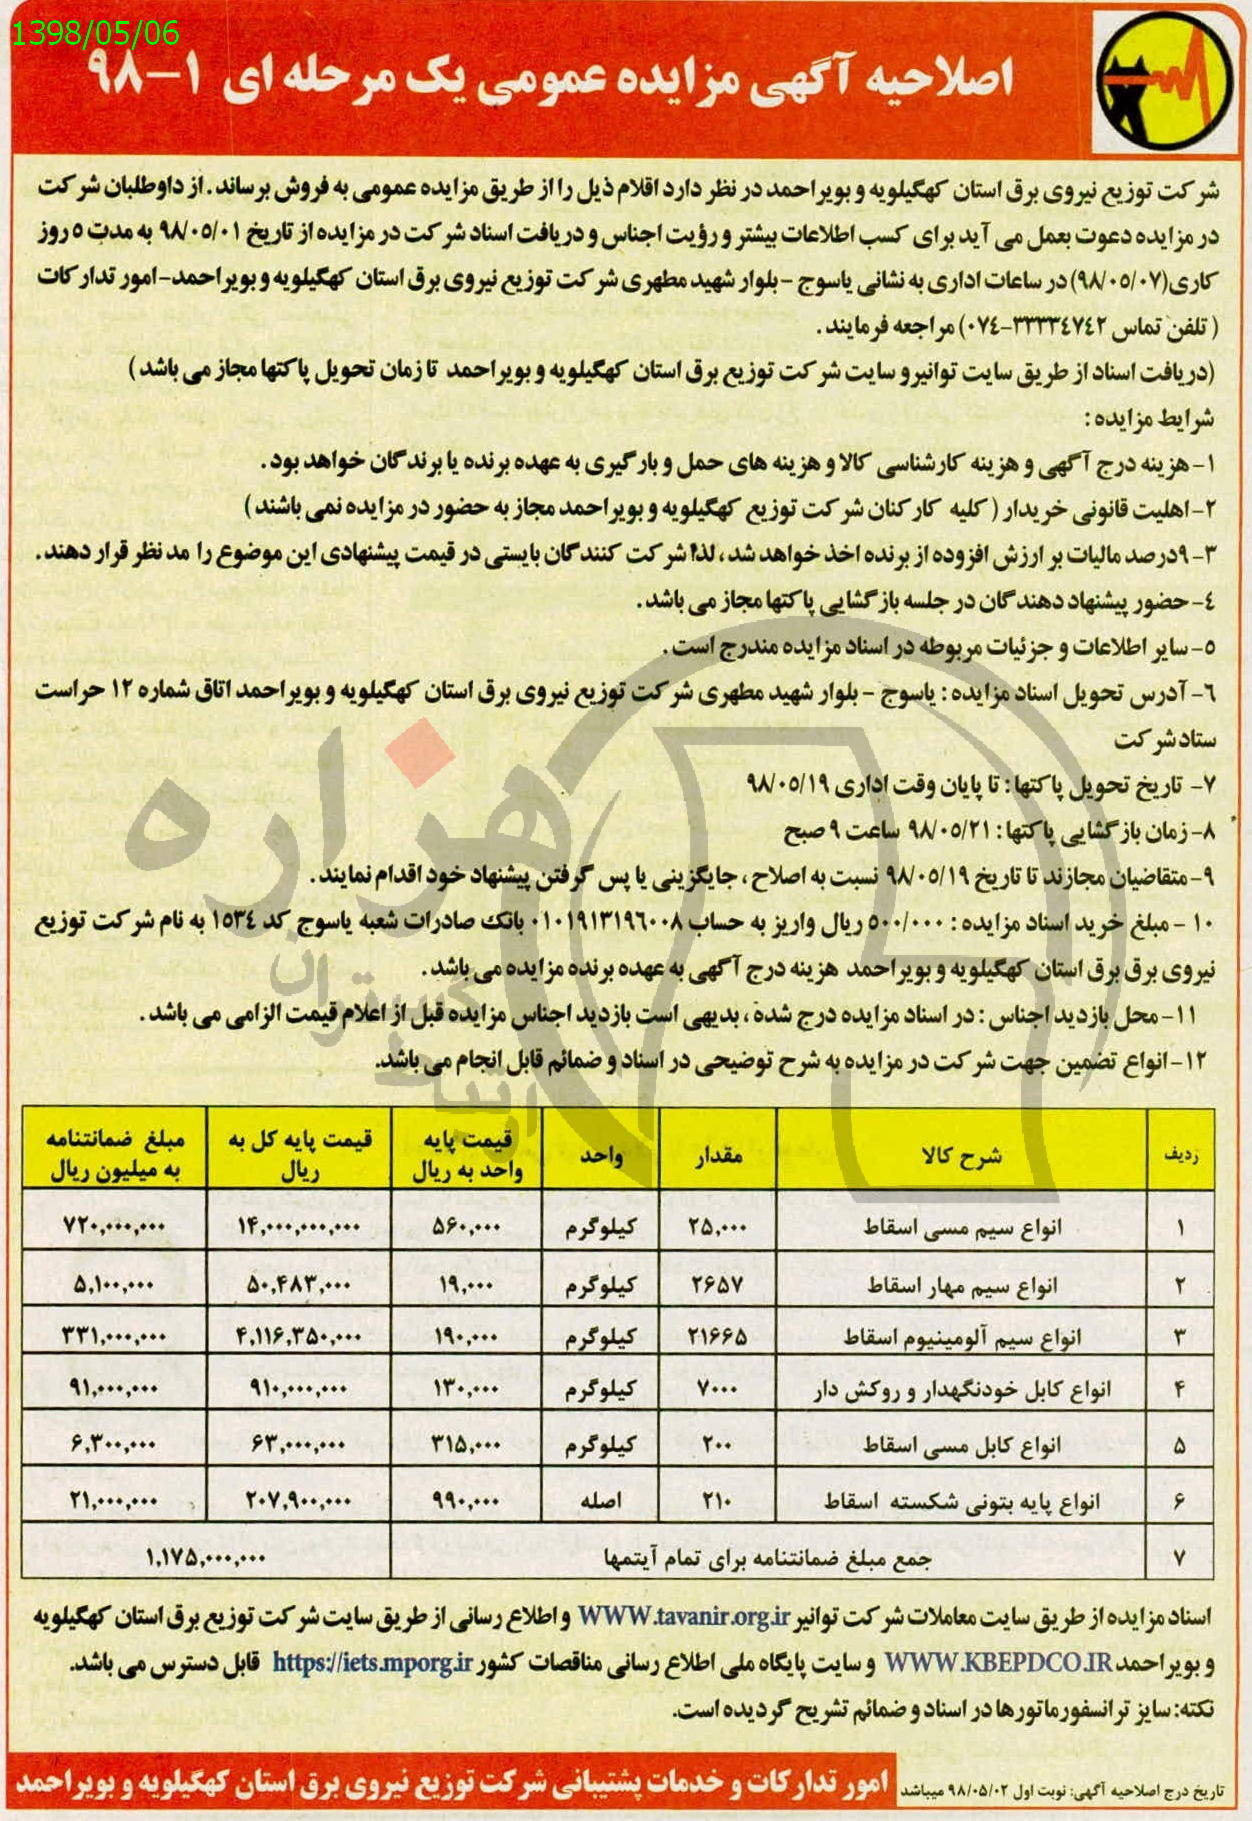 1398/05/06
اصلاحیه آگهی مزایده عمومی یک مرحله ای ۱-۹۸
شرکت توزیع نیروی برق استان کهگیلویه و بویراحمد در نظر دارد اقلام ذیل را از طریق مزایده عمومی به فروش برساند. از داوطلبان شرکت
در مزایده دعوت بعمل می آید برای کسب اطلاعات بیشتر و رؤیت اجناس و دریافت اسناد شرکت در مزایده از تاریخ ۹۸/۰۵/۰۱ به مدت ۵ روز
کاری(۹۸/۰۵/۰۷) در ساعات اداری به نشانی یاسوج - بلوار شهید مطهری شرکت توزیع نیروی برق استان کهگیلویه و بویراحمد-امور تدارکات
( تلفن تماس ۳۳۳۳٤۷٤۲-۰۷٤) مراجعه فرمایند.
(دریافت اسناد از طریق سایت توانیر و سایت شرکت توزیع برق استان کهگیلویه و بویراحمد تا زمان تحویل پاکتها مجاز می باشد)
شرایط مزایده :
۱- هزینه درج آگهی و هزینه کارشناسی کالا و هزینه های حمل و بارگیری به عهده برنده یا برندگان خواهد بود.
۲-اهلیت قانونی خریدار ( کلیه کارکنان شرکت توزیع کهگیلویه و بویراحمد مجاز به حضور در مزایده نمی باشند)
۳- ۹درصد مالیات بر ارزش افزوده از برنده اخذ خواهد شد، لذا شرکت کنندگان بایستی در قیمت پیشنهادی این موضوع را مد نظر قرار دهند.
٤- حضور پیشنهاد دهندگان در جلسه بازگشایی پاکتها مجاز می باشد.
۵- سایر اطلاعات و جزئیات مربوطه در اسناد مزایده مندرج است.
٦- آدرس تحویل اسناد مزایده : یاسوج - بلوار شهید مطهری شرکت توزیع نیروی برق استان کهگیلویه و بویراحمد اتاق شماره ۱۲ حراست
ستاد شرکت
۷- تاریخ تحویل پاکتها : تا پایان وقت اداری ۹۸/۰۵/۱۹
۸- زمان بازگشایی پاکتها : ۹۸/۰۵/۲۱ ساعت ۹ صبح
۹- متقاضیان مجازند تا تاریخ ۹۸/۰۵/۱۹ نسبت به اصلاح ، جایگزینی یا پس گرفتن پیشنهاد خود اقدام نمایند.
۱۰ - مبلغ خرید اسناد مزایده : ۵۰۰/۰۰۰ ریال واریز به حساب ۰۱۰۱۹۱۳۱۹٦۰۰۸ بانک صادرات شعبه یاسوج کد ۱۵۳٤ به نام شرکت توزیع
نیروی برق برق استان کهگیلویه و بویراحمد هزینه درج آگهی به عهده برنده مزایده می باشد.
۱۱- محل بازدید اجناس : در اسناد مزایده درج شده ، بدیهی است بازدید اجناس مزایده قبل از اعلام قیمت الزامی می باشد.
۱۲-انواع تضمین جهت شرکت در مزایده به شرح توضیحی در اسناد و ضمائم قابل انجام می باشد.
ردیف شرح کالا مقدار واحد قیمت پایه واحد به ریال قیمت پایه کل به ریال مبلغ ضمانتنامه به میلیون ریال
۱ انواع سیم مسی اسقاط ۲۵,۰۰۰ کیلوگرم ۵۶۰,۰۰۰ ۱۴,۰۰۰,۰۰۰,۰۰۰ ۷۲۰,۰۰۰,۰۰۰
۲ انواع سیم مهار اسقاط ۲۶۵۷ کیلوگرم ۱۹,۰۰۰ ۵۰,۴۸۳,۰۰۰ ۵,۱۰۰,۰۰۰
۳ انواع سیم آلومینیوم اسقاط ۲۱۶۶۵ کیلوگرم ۱۹۰,۰۰۰ ۴,۱۱۶,۳۵۰,۰۰۰ ۳۳۱,۰۰۰,۰۰۰
۴ انواع کابل خودنگهدار و روکش دار ۷۰۰۰ کیلوگرم ۱۳۰,۰۰۰ ۹۱۰,۰۰۰,۰۰۰ ۹۱,۰۰۰,۰۰۰
۵ انواع کابل مسی اسقاط ۲۰۰ کیلوگرم ۳۱۵,۰۰۰ ۶۳,۰۰۰,۰۰۰ ۶,۳۰۰,۰۰۰
۶ انواع پایه بتونی شکسته اسقاط ۲۱۰ اصله ۹۹۰,۰۰۰ ۲۰۷,۹۰۰,۰۰۰ ۲۱,۰۰۰,۰۰۰
۷ جمع مبلغ ضمانتنامه برای تمام آیتمها ۱,۱۷۵,۰۰۰,۰۰۰
اسناد مزایده از طریق سایت معاملات شرکت توانیر WWW.tavanir.org.ir و اطلاع رسانی از طریق سایت شرکت توزیع برق استان کهگیلویه
و بویراحمد WWW.KBEPDCO.IR و سایت پایگاه ملی اطلاع رسانی مناقصات کشور https://iets.mporg.ir قابل دسترس می باشد.
نکته: سایز ترانسفورماتورها در اسناد و ضمائم تشریح گردیده است.
تاریخ درج اصلاحیه آگهی: نوبت اول ۹۸/۰۵/۰۲ میباشد
امور تدارکات و خدمات پشتیبانی شرکت توزیع نیروی برق استان کهگیلویه و بویراحمد
هزاره